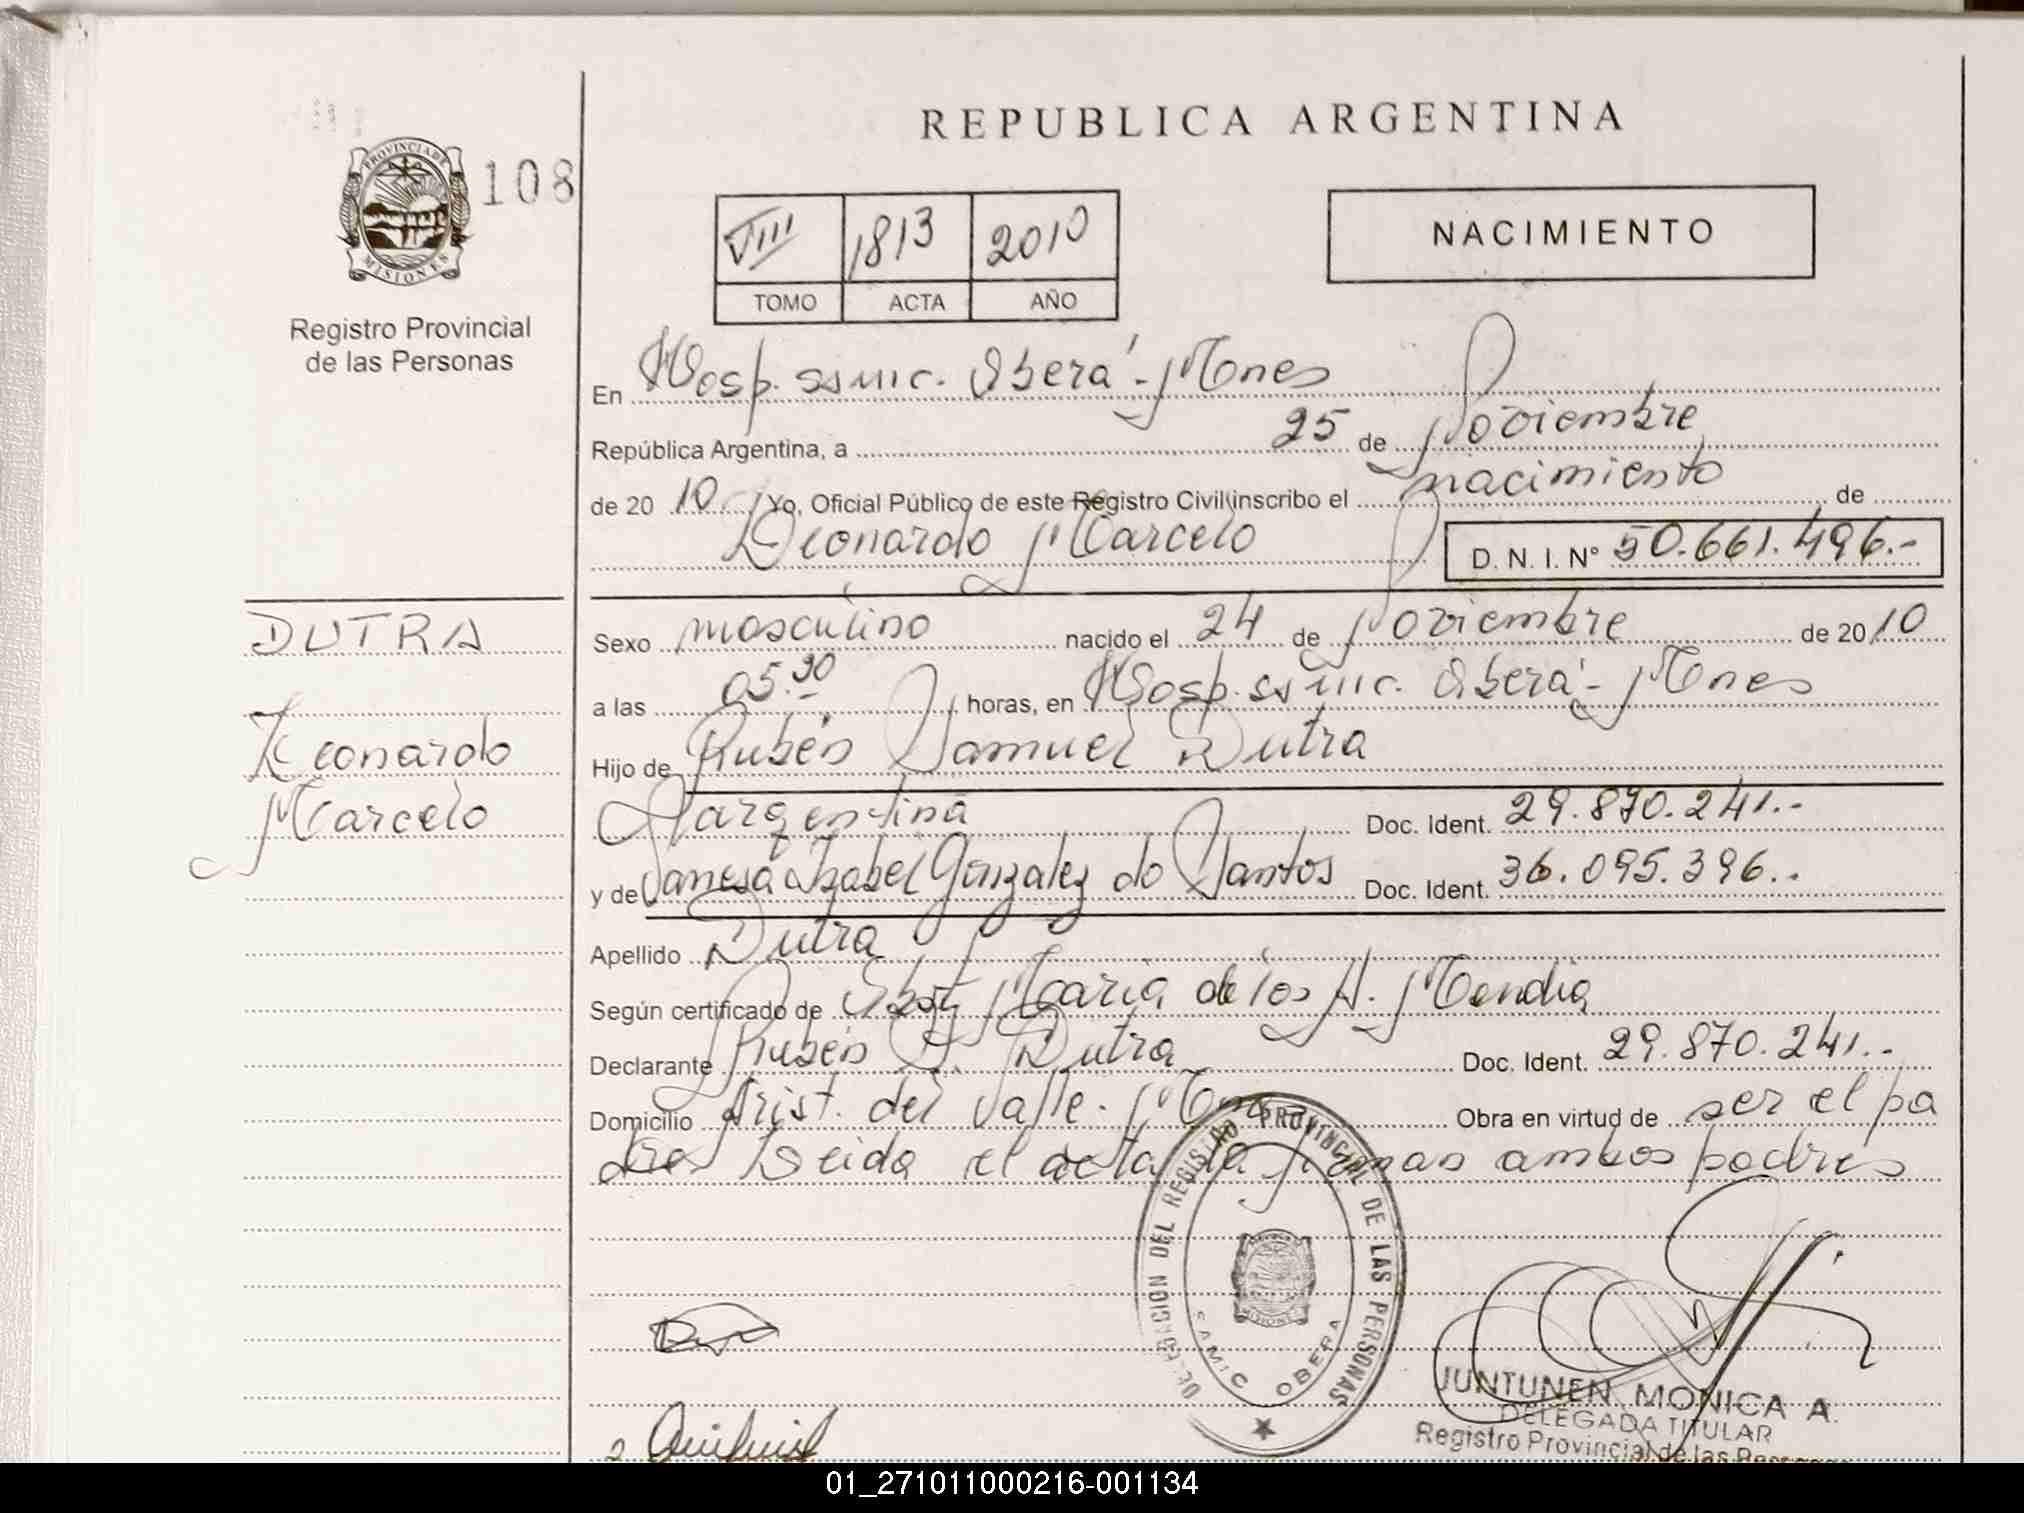 REPUBLICA ARGENTINA
PROVINCIA DE
MISIONES
108
Registro Provincial
de las Personas
VIII 1813 2010
TOMO ACTA AÑO
NACIMIENTO
En Hosp. SAMIC. Oberá - Mnes
República Argentina, a 25 de Noviembre
de 20 10 Yo, Oficial Público de este Registro Civil inscribo el nacimiento de
Leonardo Marcelo
D. N. I. Nº 50.661.496.-
DUTRA
Leonardo
Marcelo
Sexo masculino nacido el 24 de Noviembre de 20 10
a las horas, en Hosp. SAMIC. Oberá - Mnes
Hijo de Rubén Samuel Dutra
Argentina Doc. Ident. 29.870.241.-
y de Vanesa Izabel Gonzalez do Santos Doc. Ident. 36.095.396..
Apellido Dutra
Según certificado de Obst. María de los A. Mendia
Declarante Rubén S. Dutra Doc. Ident. 29.870.241..
Domicilio Arist. del Valle. Mnes Obra en virtud de ser el pa
dre Leida el acta la firman ambos padres
DELEGACION DEL REGISTRO PROVINCIAL DE LAS PERSONAS
SAMIC OBERA
MISIONES
JUNTUNEN MONICA A.
DELEGADA TITULAR
Registro Provincial de las Personas
01_271011000216-001134